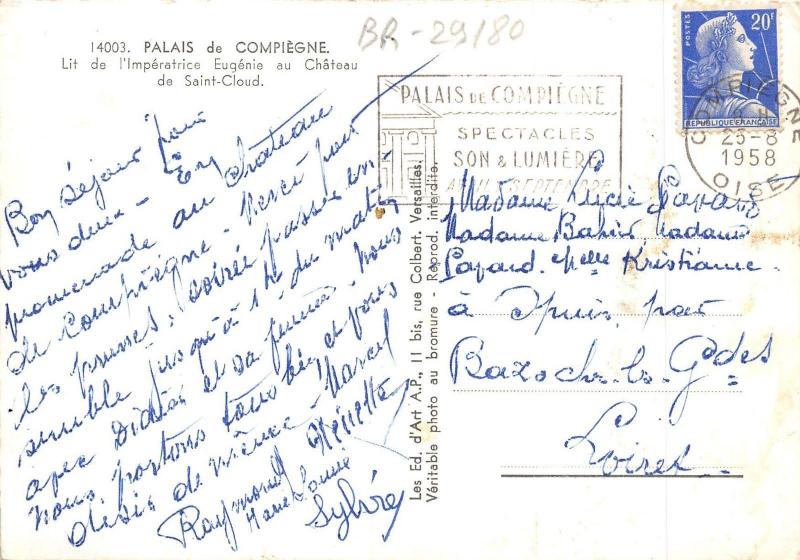 BR-29/80
14003. PALAIS de COMPIÈGNE.
Lit de l'Impératrice Eugénie au Château
de Saint-Cloud.
Bon séjour pour
vous deux - En
promenade au Château
de Compiègne. Merci pour
les prunes; soirée passée en-
semble jusqu'à 1h du matin
avec Didier et sa femme. Nous
nous portons tous bien et vous
désir de même - Marcel
Raymond Ginette
Marie Louise
Sylvie
Les Ed. d'Art A.P., 11 bis, rue Colbert. Versailles.
Véritable photo au bromure - Reprod. interdite.
PALAIS DE COMPIÈGNE
SPECTACLES
SON & LUMIÈRE
AVRIL SEPTEMBRE
POSTES
20F
REPUBLIQUE FRANÇAISE
COMPIEGNE
25-8
1958
OISE
Madame Lucie
Madame Madame
et Melle Kristiane
à par
Bazoches-les-Gdes
Loiret